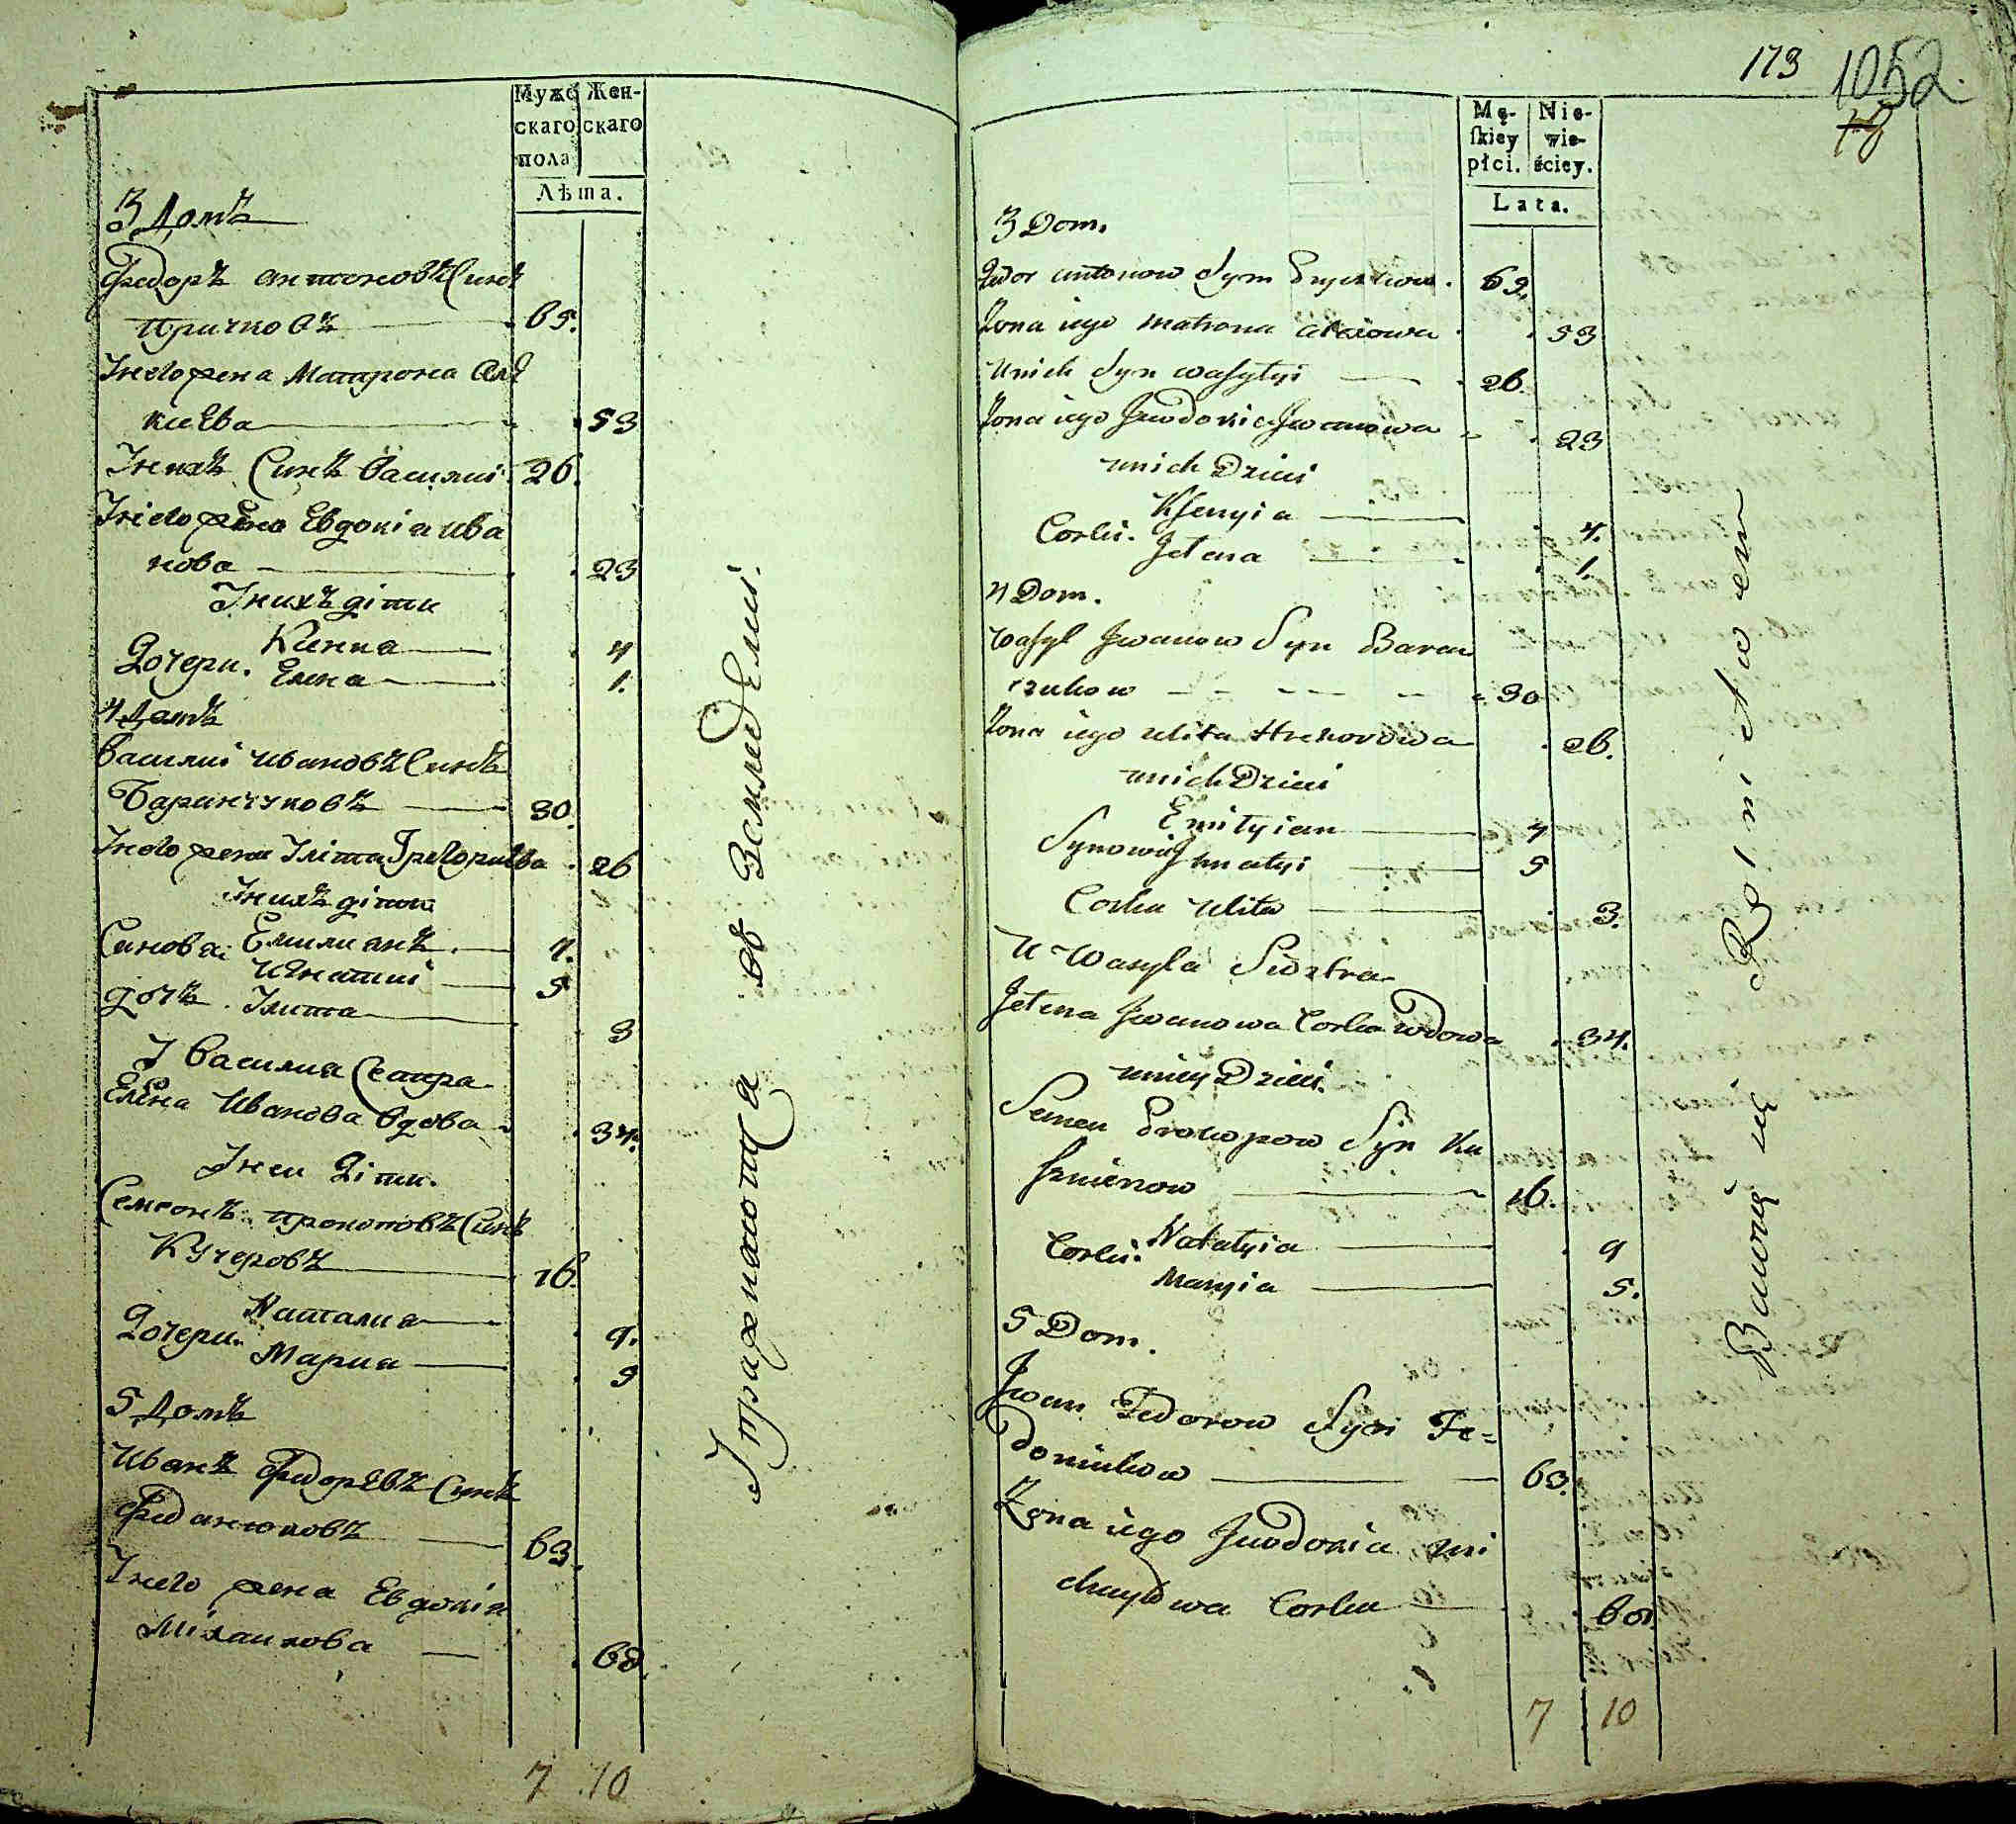 Мужс Жен-
скаго скаго
пола
Лѣта.
3 Домъ
Федоръ антоновъ Синъ
Причковъ 65.
Унего жена Матрона Але
киева 53
Унихъ Синъ Василий 26.
Унего жена Евдокиа ива
нова 23
Унихъ діти
Дочери. Ксенка 4
Елена 1.
4 Домъ
Василий ивановъ Синъ
Баринчуковъ 30.
Унего жена Улита Григориева 26
Унихъ діти
Синовя Емилианъ 7.
Игнатий 5
дочъ Улита 3
У Василия Сестра
Елена Иванова вдова 34.
Унеи Діти.
Семеонъ прокоповъ Синъ
Кучеровъ 16.
Дочери Наталиа 9.
Мариа 5
5 Домъ
Иванъ Федоровъ Синъ
Феданюковъ 63.
Унего жена Евдокиа
Михаилова 60.
7 10
Упражняются въ Земледелии.
173 1052.
Mę- Nie-
ſkiey wie-
płci. ściey.
Lata.
3 Dom.
antonow Syn 62.
Żona iego Matrona alexiowa 53
Unich Syn wasylyi 26.
Żona iego Jewdokia Jwanowa 23
unich Dzieci
Corki. Ksenyia 4.
Jelena 1.
4 Dom.
wasyl Jwanow Syn Baran
czukow 30
Żona iego ulita Hrehorowa 26.
unich Dzieci
Synowie Emilyian 7
Jhnatyi 5
Corka ulita 3.
U Wasyla Siostra
Jelena Jwanowa Corka wdowa 34.
uniey Dzieci.
Semen Prokopow Syn Ku
16.
Corki. Natalyia 9
Maryia 5.
5 Dom.
Jwan Fedorow Syn Fe=
doniukow 63.
Żona iego Jewdokia mi
chayłowa Corka 60.
7 10
Bawią się Rolnictwem